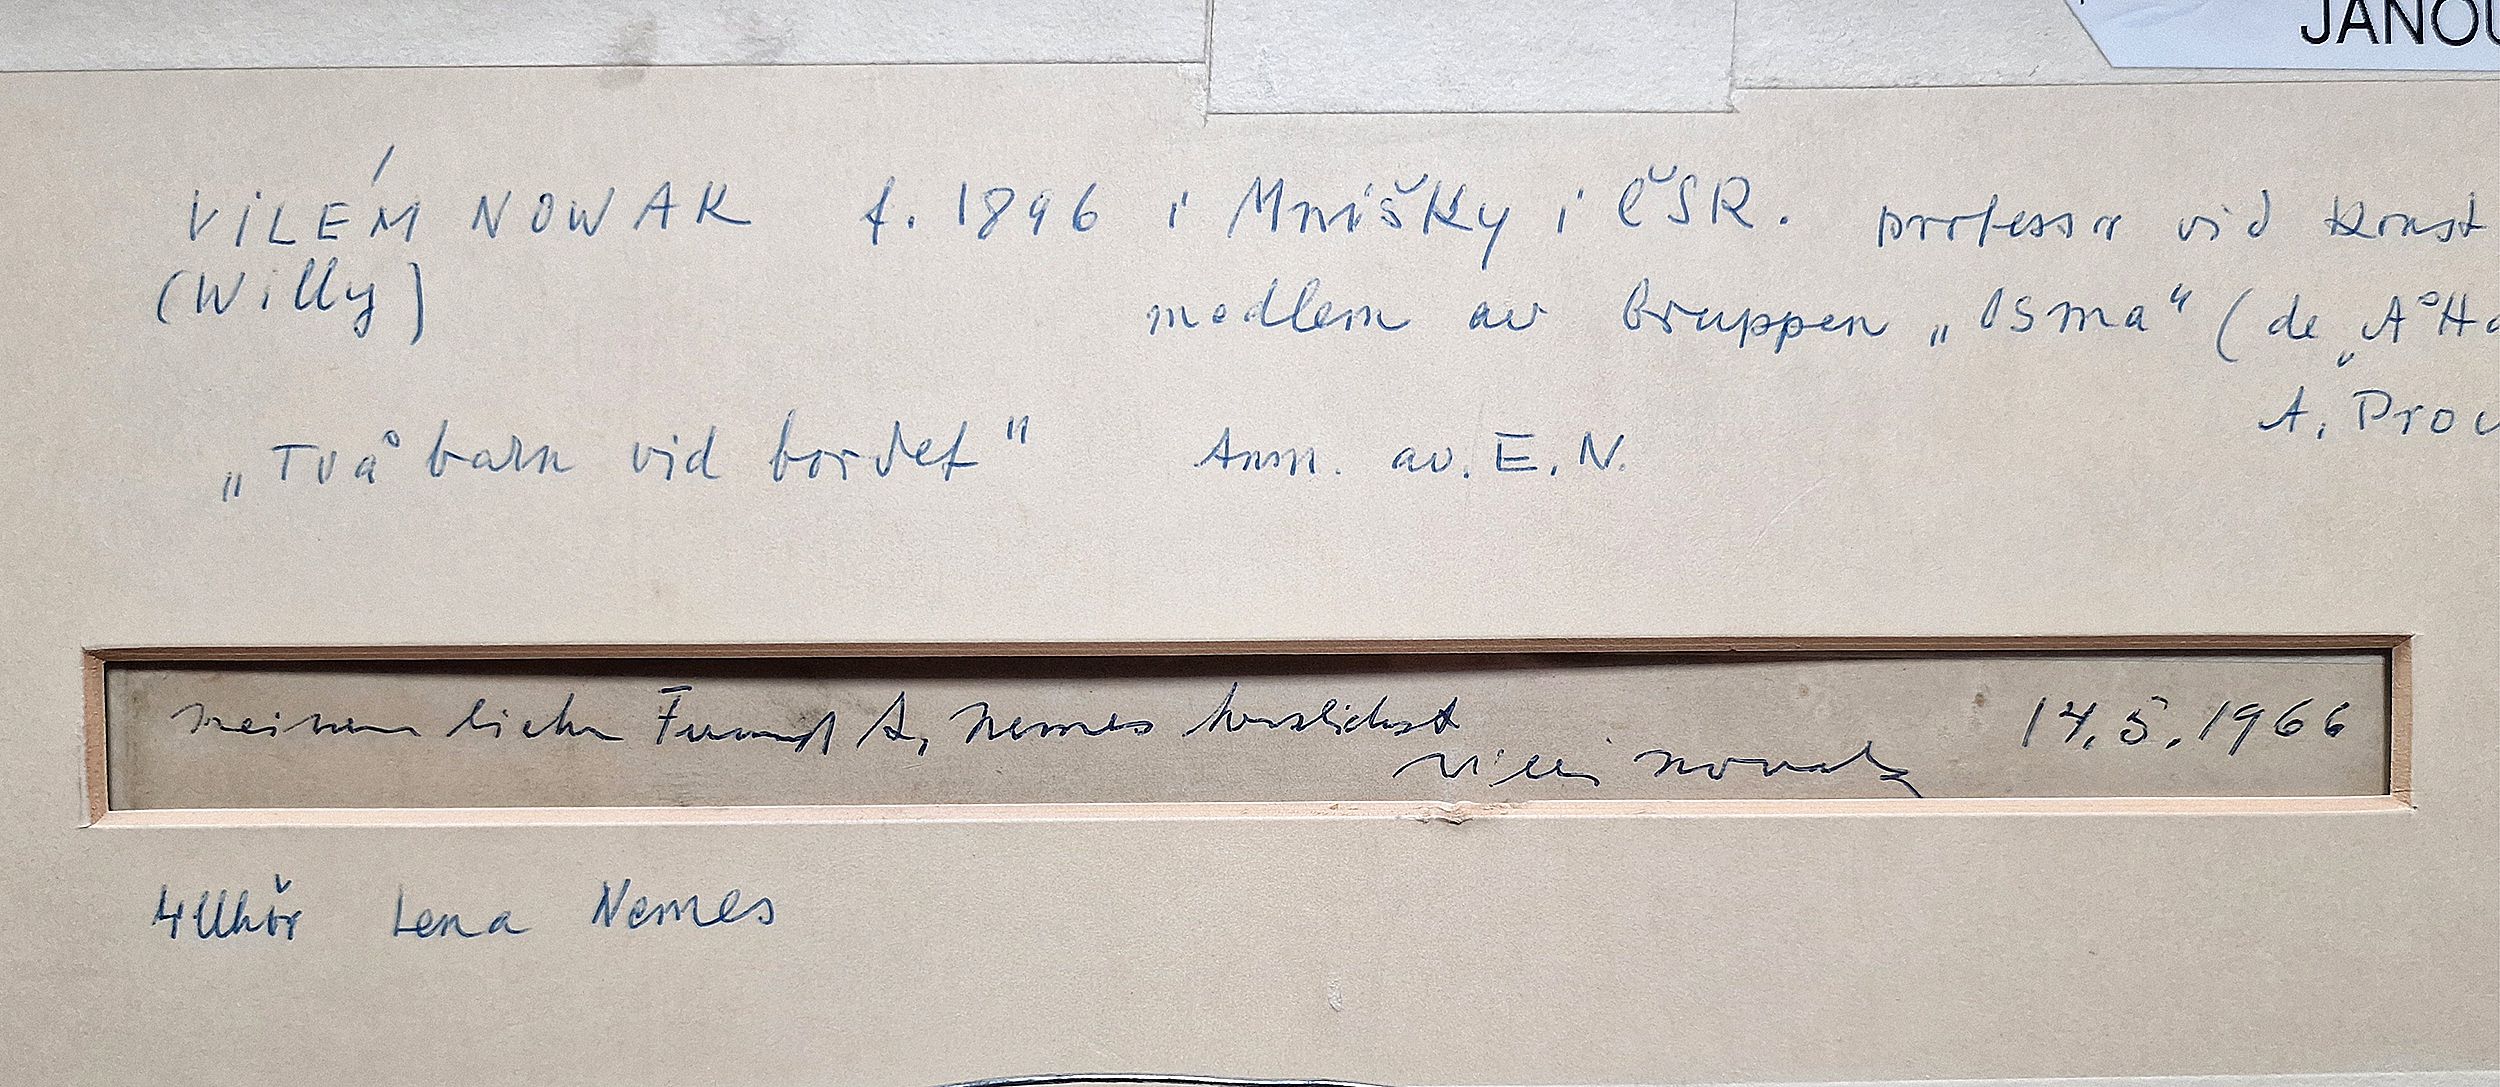 JANOU
VILÉM NOWAK f. 1896 i Mníšky i ČSR. professor vid Konst
(Willy)
medlem av Gruppen „Osma" (de „Åtta
A. Proc
„Två barn vid bordet" Anm. av. E. N.
meinem lieben Freund E. Nemes herzlichst
Willi Nowak
14.5.1966
tillhör Lena Nemes